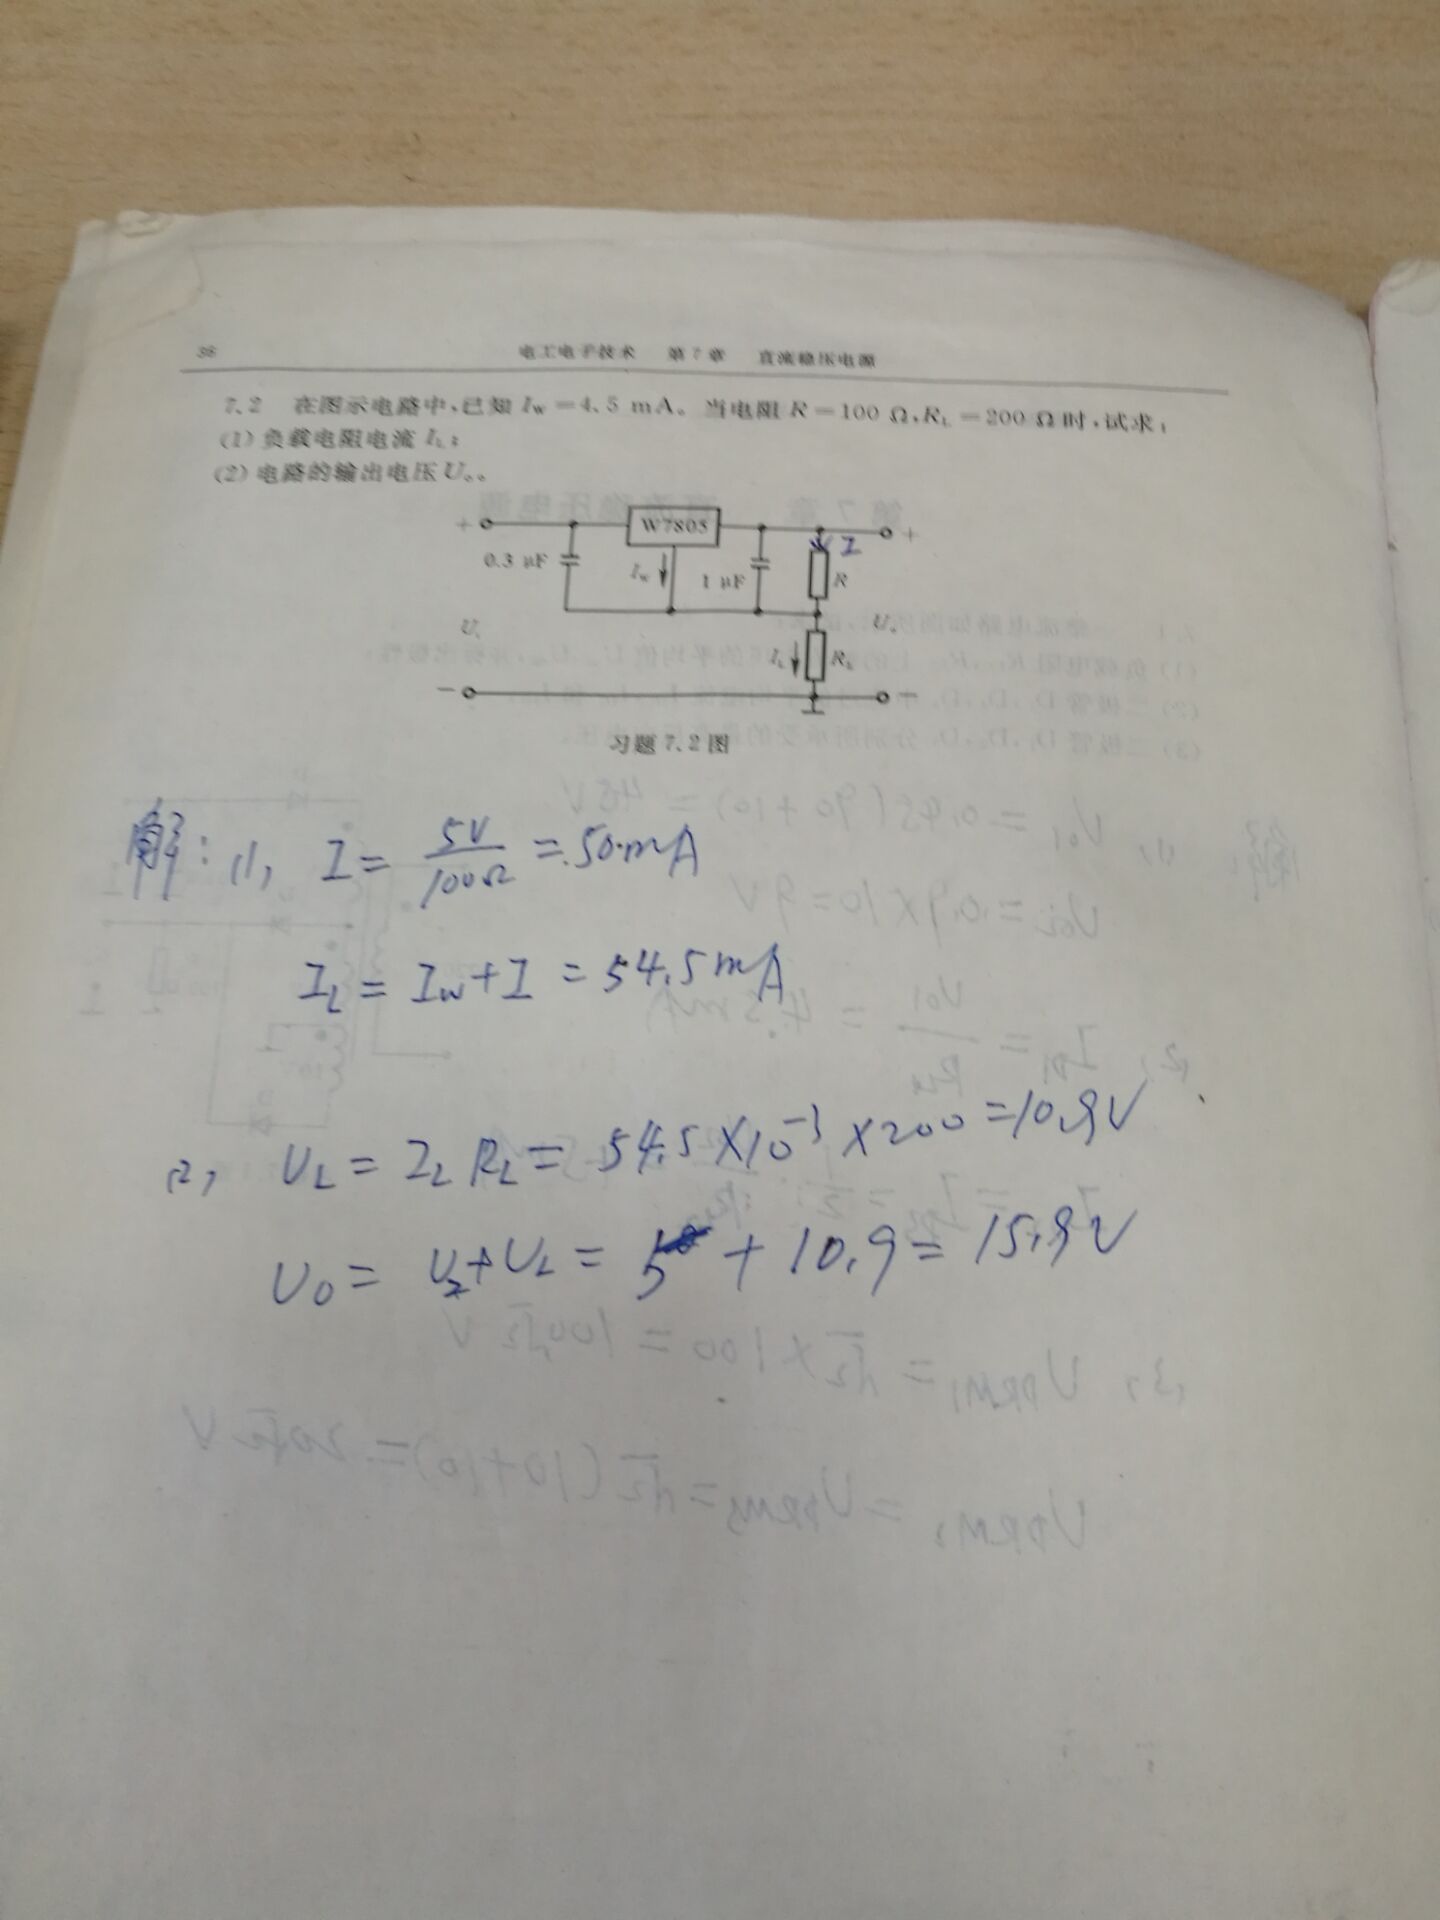 36 电工电子技术 第7章 直流稳压电源
7.2 在图示电路中,已知 Iw=4.5 mA。当电阻 R=100 Ω,RL=200 Ω时,试求:
(1) 负载电阻电流 IL;
(2) 电路的输出电压 Uo。
+ W7805 +
I
0.3 μF Iw 1 μF R
Ui Uo
IL RL
− −
习题 7.2 图
解: (1), I = 5V/100Ω = 50mA
IL = Iw+I = 54.5mA
(2), UL = IL RL = 54.5×10⁻³×200=10.9V
U0 = U2+UL = 5 + 10.9 = 15.9V